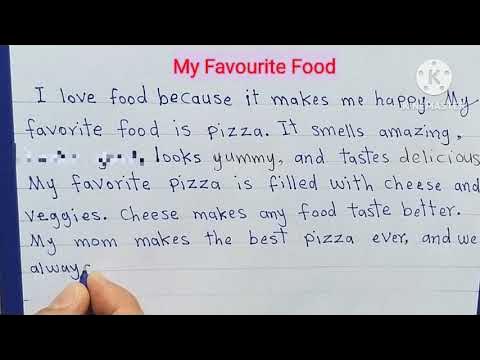 My Favourite Food
I love food because it makes me happy. My
favorite food is pizza. It smells amazing,
looks yummy, and tastes delicious
My favorite pizza is filled with cheese and
veggies. Cheese makes any food taste better.
My mom makes the best pizza ever, and we
always